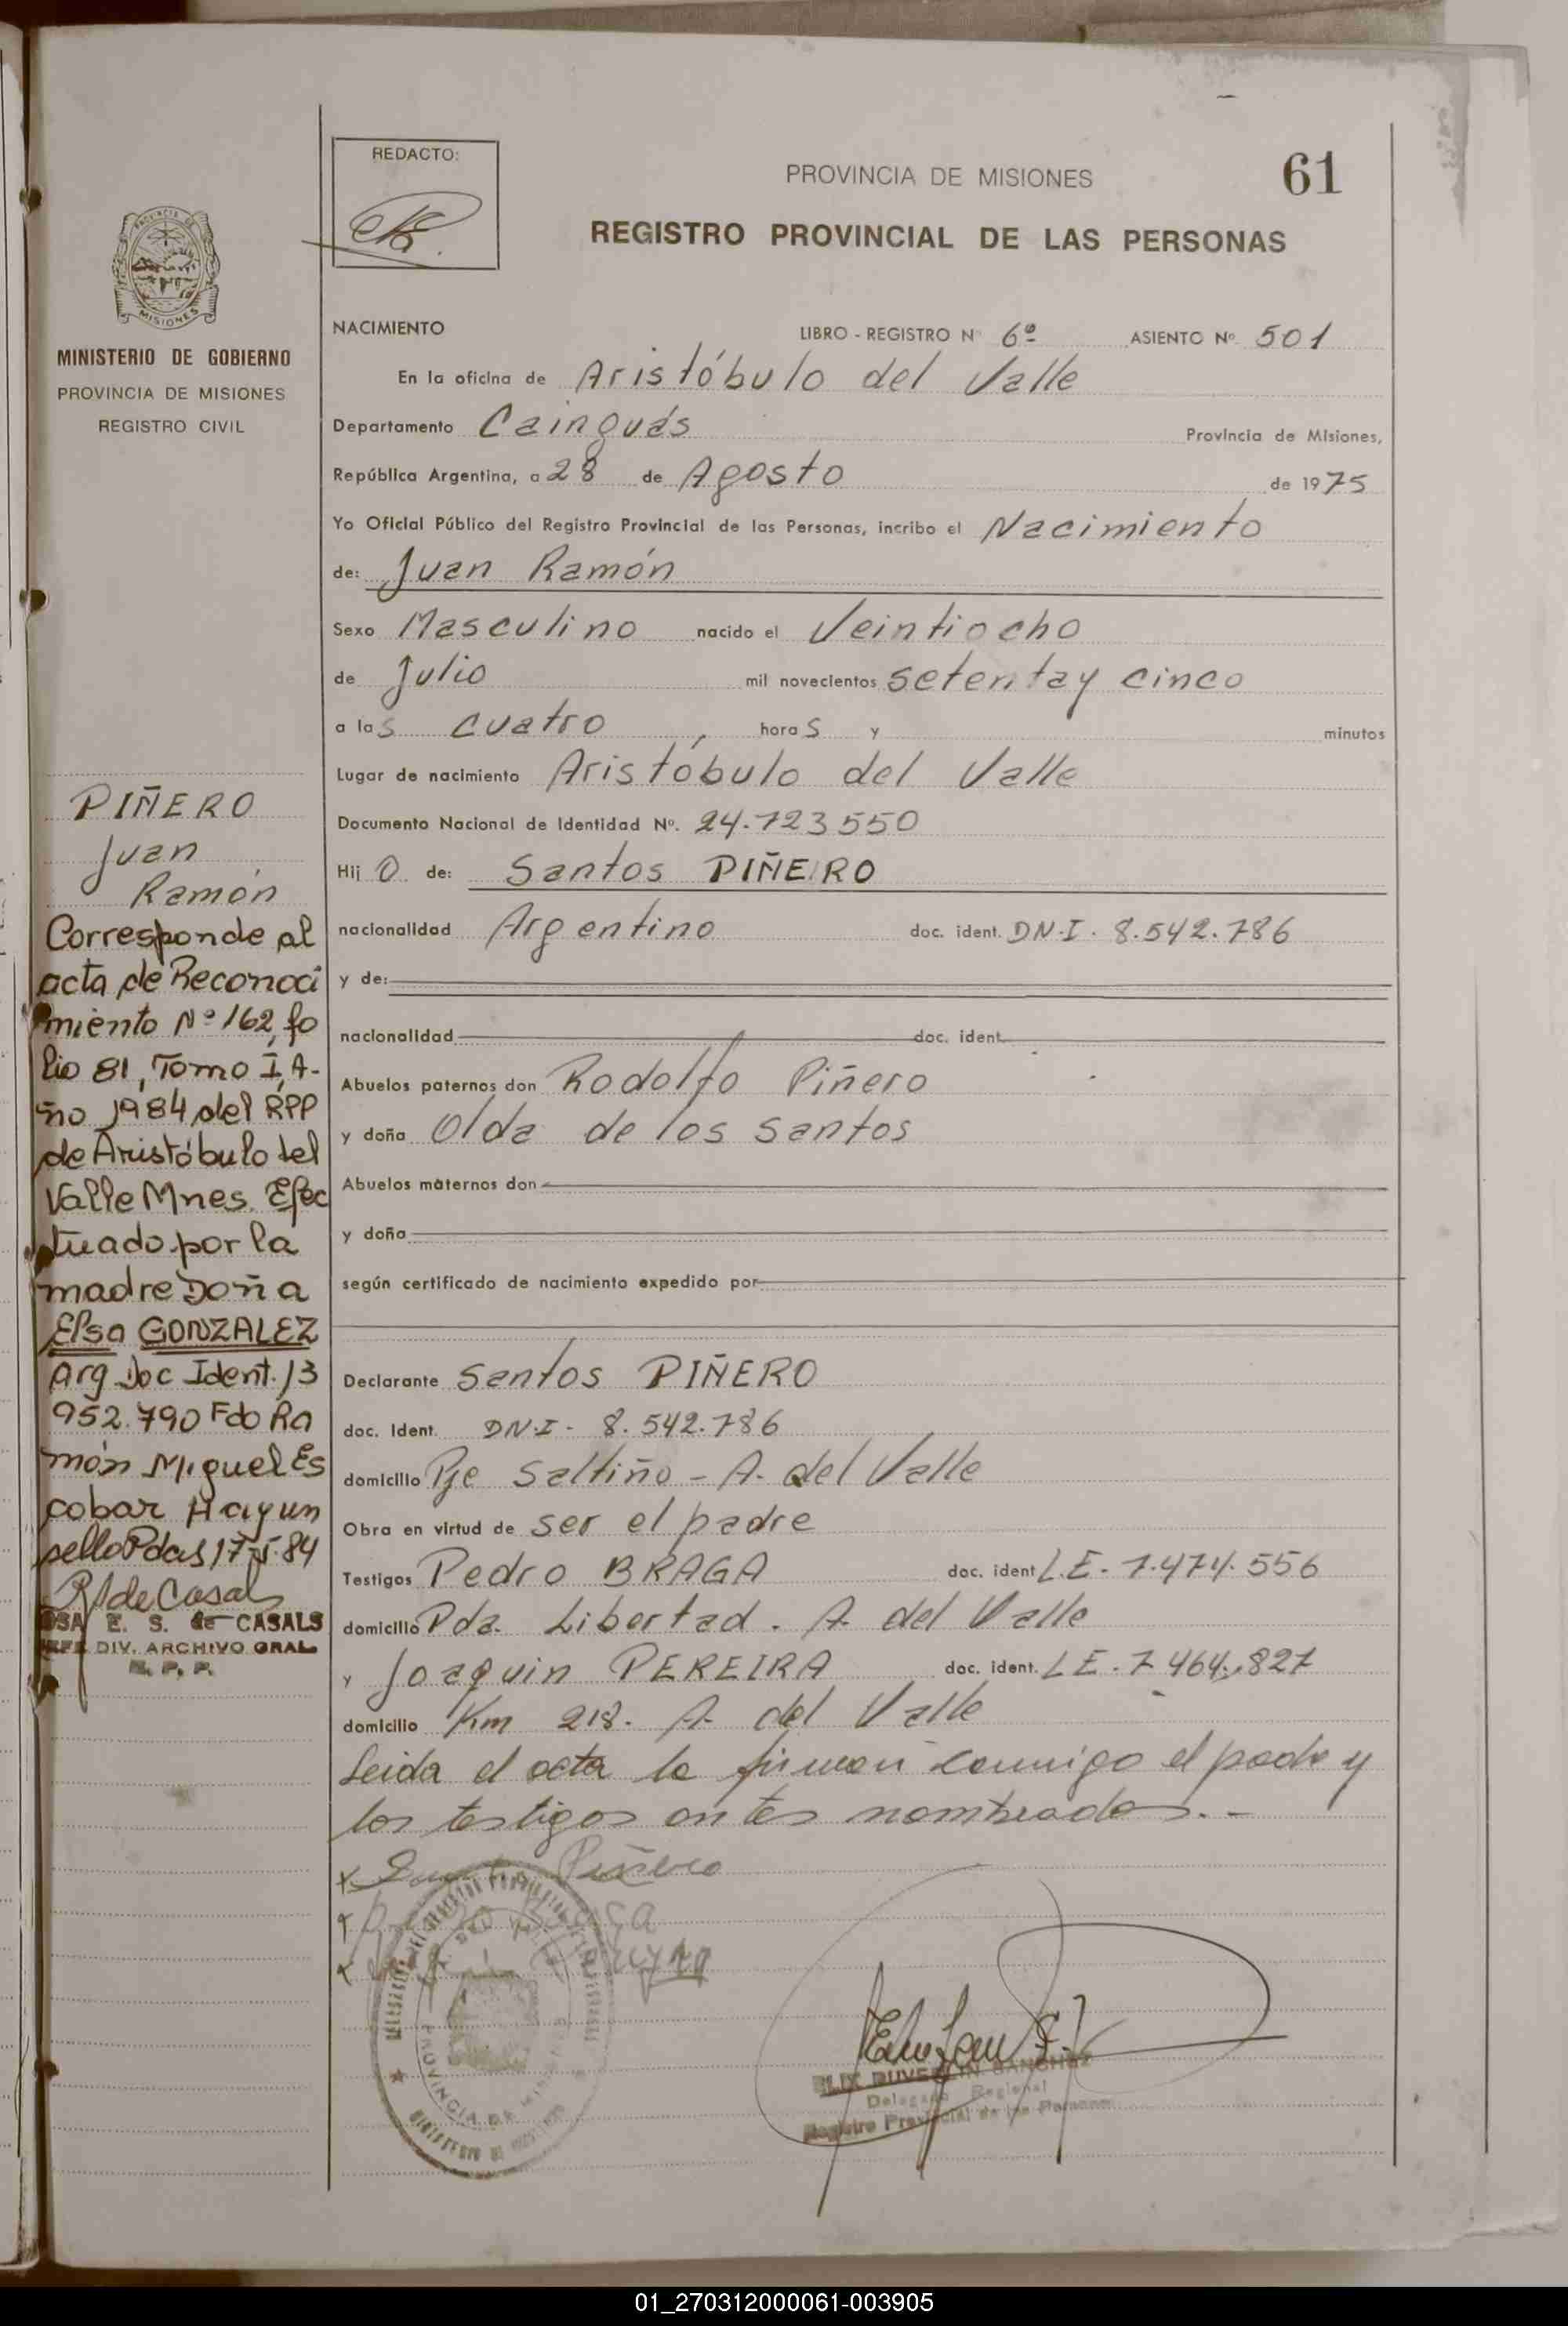 REDACTO:
PROVINCIA DE MISIONES
61
REGISTRO PROVINCIAL DE LAS PERSONAS
MISIONES
MINISTERIO DE GOBIERNO
PROVINCIA DE MISIONES
REGISTRO CIVIL
NACIMIENTO LIBRO - REGISTRO Nº 6º ASIENTO Nº 501
En la oficina de Aristóbulo del Valle
Departamento Cainguás Provincia de Misiones,
República Argentina, a 28 de Agosto de 1975
Yo Oficial Público del Registro Provincial de las Personas, incribo el Nacimiento
de: Juan Ramón
Sexo Masculino nacido el Veintiocho
de Julio mil novecientos setenta y cinco
a las cuatro, horas y minutos
Lugar de nacimiento Aristóbulo del Valle
Documento Nacional de Identidad Nº. 24.723550
Hijo de: Santos PIÑERO
nacionalidad Argentino doc. ident. DN.I. 8.542.786
y de:
nacionalidad doc. ident.
Abuelos paternos don Rodolfo Piñero
y doña Olda de los Santos
Abuelos maternos don
y doña
según certificado de nacimiento expedido por
Declarante Santos PIÑERO
doc. Ident. DN.I - 8.542.786
domicilio Pje Saltiño - A. del Valle
Obra en virtud de ser el padre
Testigos Pedro BRAGA doc. ident L.E - 7.474.556
domicilio Pda. Libertad. A. del Valle
y Joaquin PEREIRA doc. ident. LE - 7.464.827
domicilio Km 218. A. del Valle
Leida el acta la firman conmigo el padre y
los testigos antes nombrados.-
Piñero
Braga
PROVINCIA DE MISIONES
SANCHEZ
Delegado Regional
Registro Provincial de las Personas
PIÑERO
Juan
Ramón
Corresponde al
acta de Reconoci
miento Nº 162, fo
lio 81, Tomo I, A-
ño 1984 del RPP
de Aristóbulo del
Valle Mnes. Efec
tuado por la
madre Doña
Elsa GONZALEZ
Arg Doc Ident. 13
952.790 Fdo Ra
món Miguel Es
cobar Hay un
sello Pdas 17.5.84
R S de Casals
E. S. de CASALS
JEFE DIV. ARCHIVO GRAL
R. P. P.
01_270312000061-003905